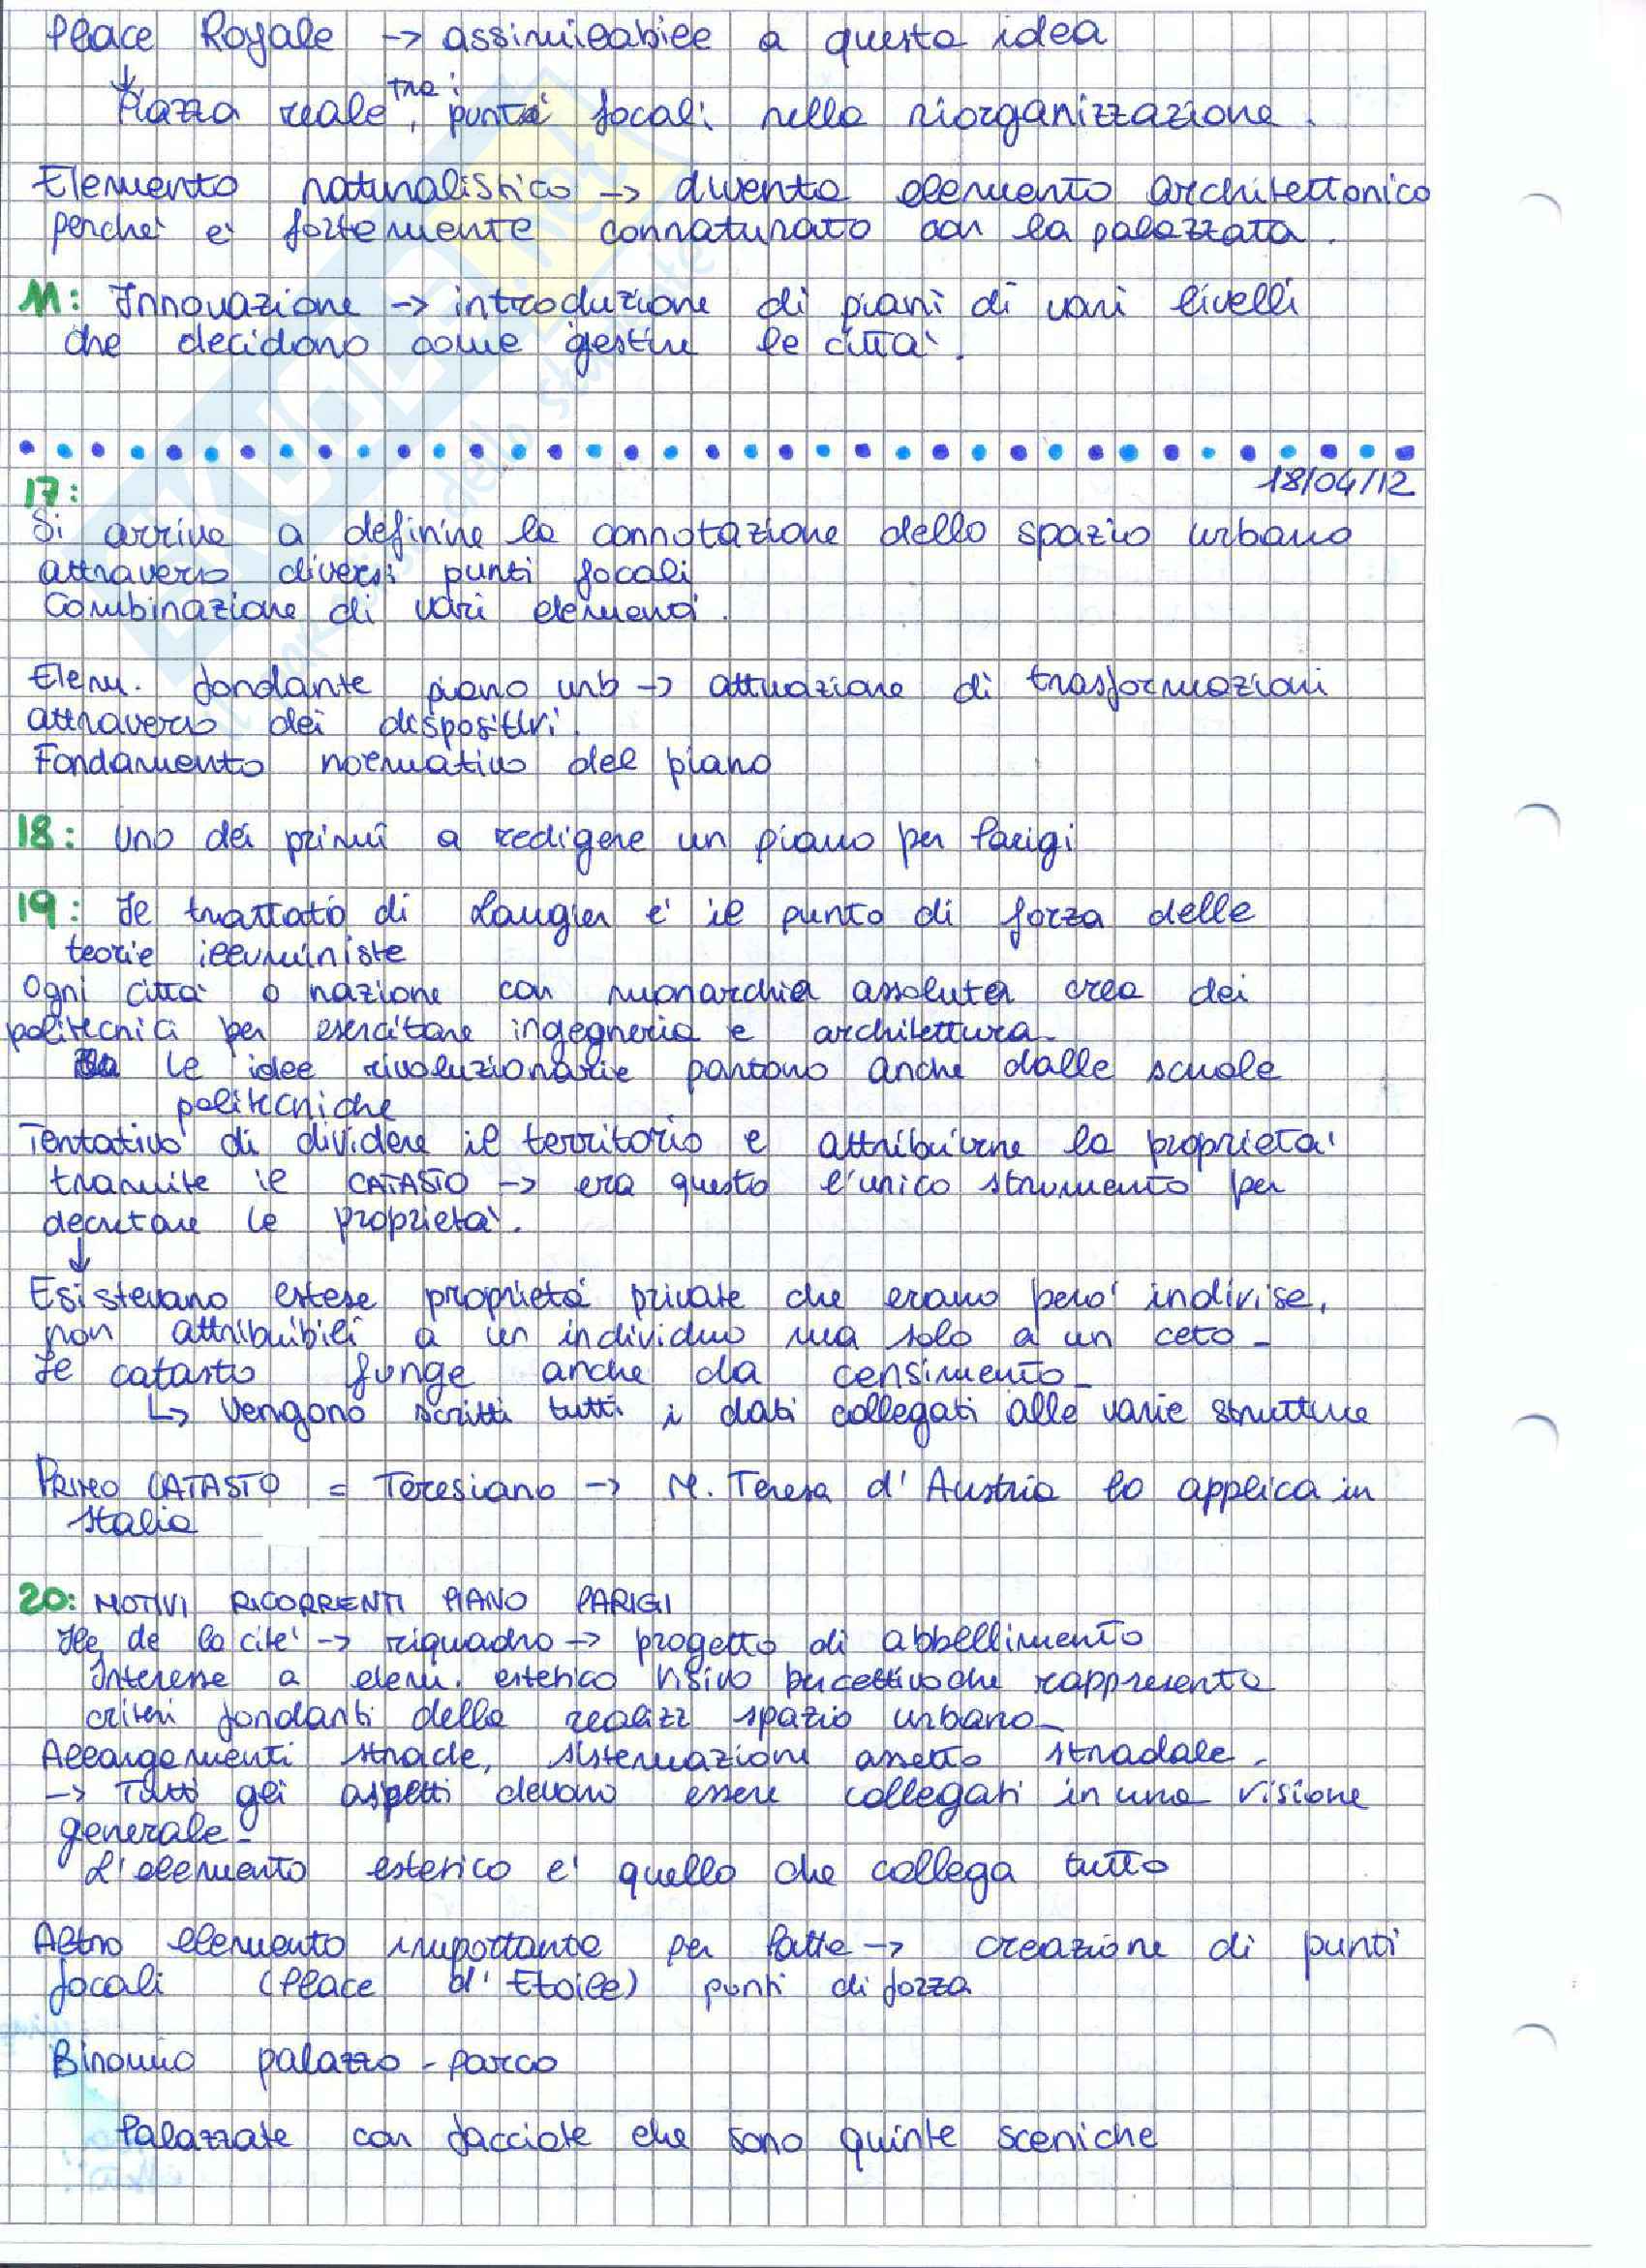 Place Royale -> assimilabile a questa idea
Piazza reale, tra i punti focali nella riorganizzazione.
Elemento naturalistico -> diventa elemento architettonico
perche' e' fortemente connaturato con la palazzata.
11: Innovazione -> introduzione di piani di vari livelli
che decidono come gestire le citta'.
18/04/12
17:
Si arriva a definire la connotazione dello spazio urbano
attraverso diversi punti focali
Combinazione di vari elementi.
Elem. fondante piano urb -> attuazione di trasformazioni
attraverso dei dispositivi.
Fondamento normativo del piano
18: Uno dei primi a redigere un piano per Parigi
19: Il trattato di Laugier e' il punto di forza delle
teorie illuministe
Ogni citta' o nazione con monarchia assoluta crea dei
politecnici per esercitare ingegneria e architettura.
le idee rivoluzionarie partono anche dalle scuole
politecniche
Tentativo di dividere il territorio e attribuirne la proprieta'
tramite il CATASTO -> era questo l'unico strumento per
decretare le proprieta'.
↓
Esistevano estese proprieta' private che erano pero' indivise,
non attribuibili a un individuo ma solo a un ceto.
Il catasto funge anche da censimento.
↳ Vengono scritti tutti i dati collegati alle varie strutture
PRIMO CATASTO = Teresiano -> M. Teresa d'Austria lo applica in
Italia
20: MOTIVI RICORRENTI PIANO PARIGI
Ile de la cite' -> riquadro -> progetto di abbellimento
Interesse a elem. estetico visivo percettivo che rappresenta
criteri fondanti della realizz spazio urbano.
Allargamenti strade, sistemazioni assetto stradale.
-> Tutti gli aspetti devono essere collegati in una visione
generale.
L'elemento estetico e' quello che collega tutto
Altro elemento importante per Patte -> creazione di punti
focali (Place d'Etoile) punti di forza
Binomio palazzo - parco
Palazzate con facciate che sono quinte sceniche